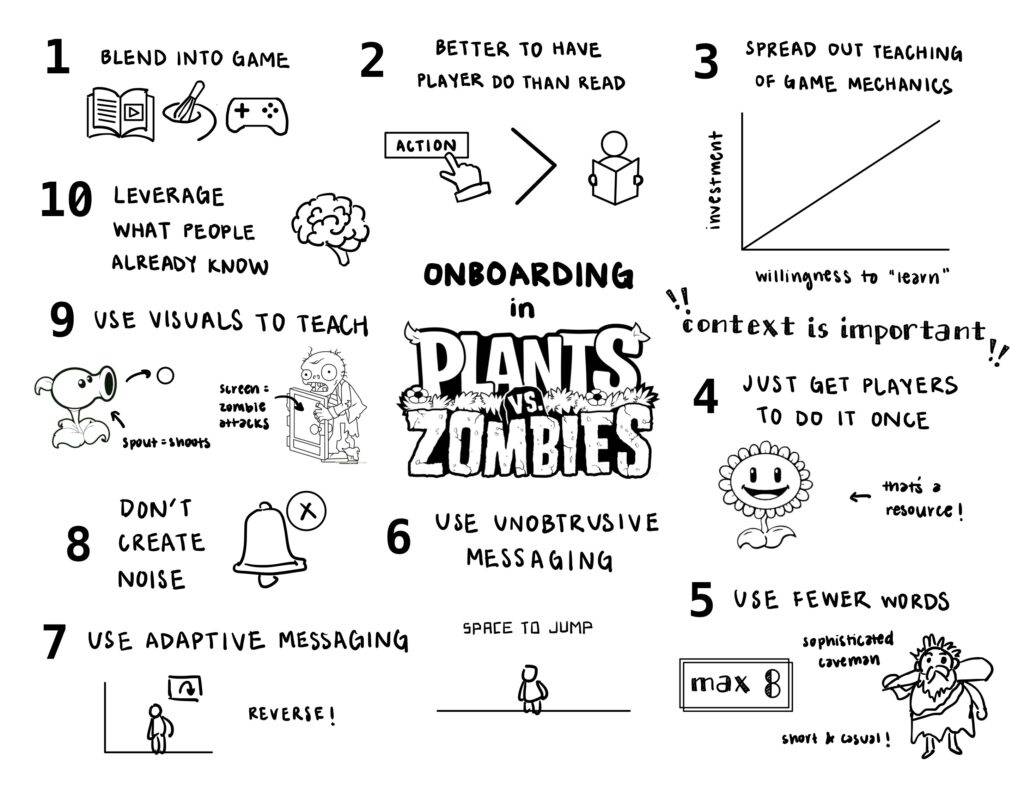 1
BLEND INTO GAME
2
BETTER TO HAVE
PLAYER DO THAN READ
ACTION
3
SPREAD OUT TEACHING
OF GAME MECHANICS
investment
willingness to "learn"
!! context is important !!
4
JUST GET PLAYERS
TO DO IT ONCE
that's a
resource!
5
USE FEWER WORDS
max 8
sophisticated
caveman
short & casual!
6
USE UNOBTRUSIVE
MESSAGING
SPACE TO JUMP
7
USE ADAPTIVE MESSAGING
REVERSE!
8
DON'T
CREATE
NOISE
X
9
USE VISUALS TO TEACH
spout = shoots
screen =
zombie
attacks
10
LEVERAGE
WHAT PEOPLE
ALREADY KNOW
ONBOARDING
in
PLANTS
VS.
ZOMBIES